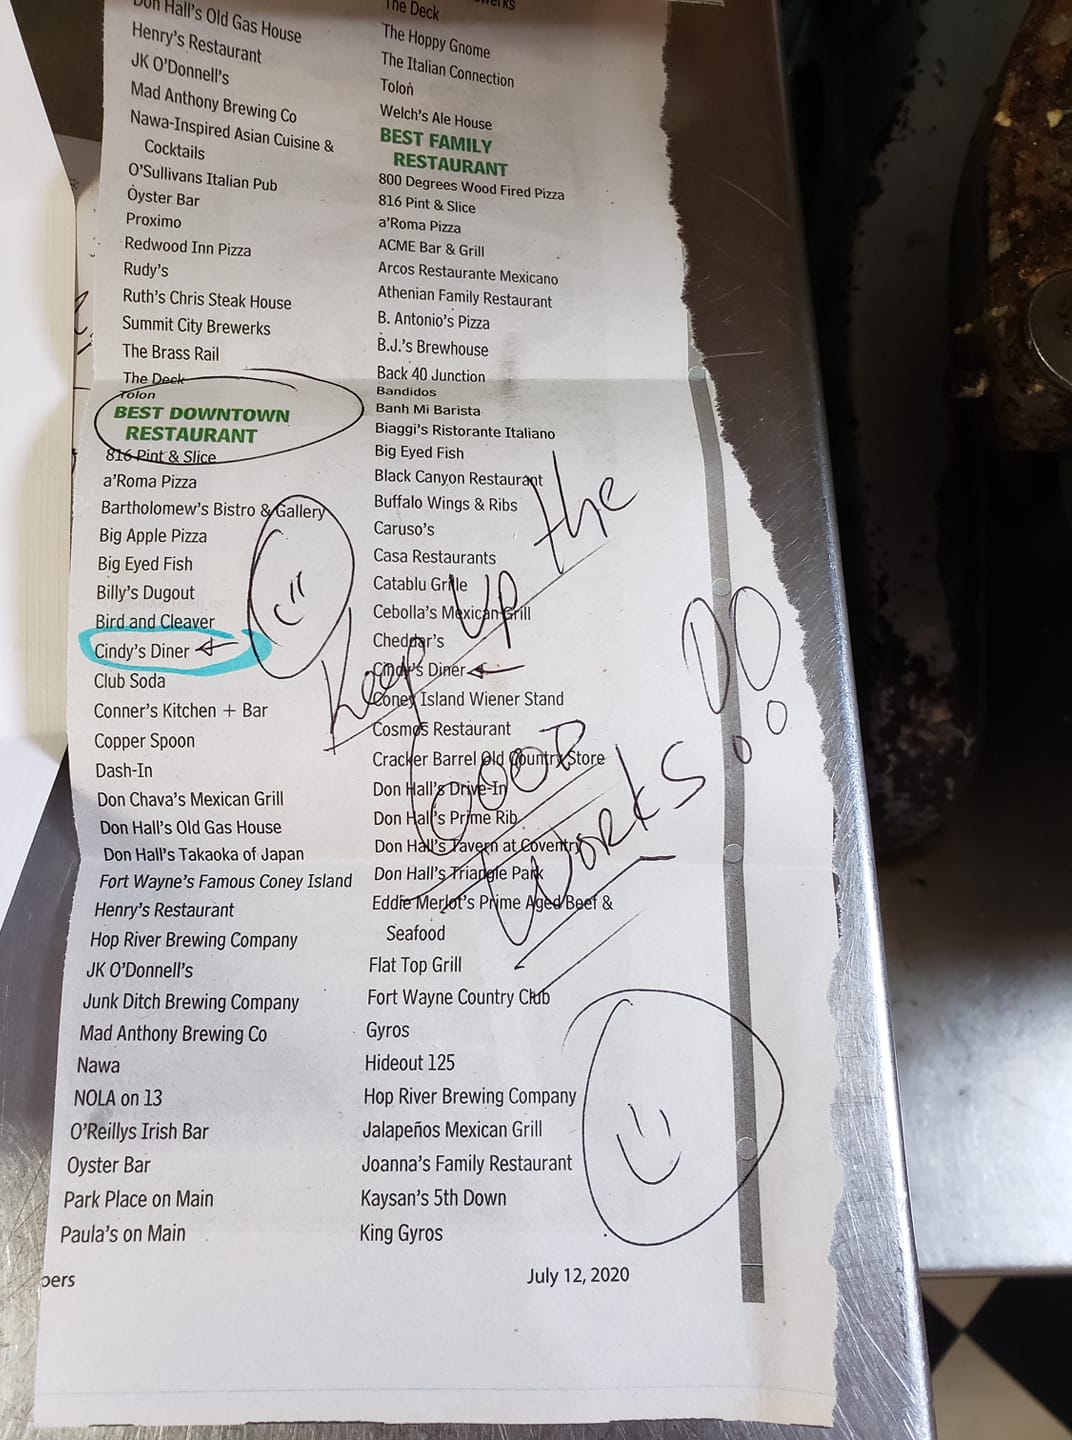 Don Hall's Old Gas House
Henry's Restaurant
JK O'Donnell's
Mad Anthony Brewing Co
Nawa-Inspired Asian Cuisine &
Cocktails
O'Sullivans Italian Pub
Oyster Bar
Proximo
Redwood Inn Pizza
Rudy's
Ruth's Chris Steak House
Summit City Brewerks
The Brass Rail
The Deck
Tolon
BEST DOWNTOWN
RESTAURANT
816 Pint & Slice
a'Roma Pizza
Bartholomew's Bistro & Gallery
Big Apple Pizza
Big Eyed Fish
Billy's Dugout
Bird and Cleaver
Cindy's Diner
Club Soda
Conner's Kitchen + Bar
Copper Spoon
Dash-In
Don Chava's Mexican Grill
Don Hall's Old Gas House
Don Hall's Takaoka of Japan
Fort Wayne's Famous Coney Island
Henry's Restaurant
Hop River Brewing Company
JK O'Donnell's
Junk Ditch Brewing Company
Mad Anthony Brewing Co
Nawa
NOLA on 13
O'Reillys Irish Bar
Oyster Bar
Park Place on Main
Paula's on Main
The Deck
The Hoppy Gnome
The Italian Connection
Tolon
Welch's Ale House
BEST FAMILY
RESTAURANT
800 Degrees Wood Fired Pizza
816 Pint & Slice
a'Roma Pizza
ACME Bar & Grill
Arcos Restaurante Mexicano
Athenian Family Restaurant
B. Antonio's Pizza
B.J.'s Brewhouse
Back 40 Junction
Bandidos
Banh Mi Barista
Biaggi's Ristorante Italiano
Big Eyed Fish
Black Canyon Restaurant
Buffalo Wings & Ribs
Caruso's
Casa Restaurants
Catablu Grille
Cebolla's Mexican Grill
Cheddar's
Cindy's Diner
Coney Island Wiener Stand
Cosmos Restaurant
Cracker Barrel Old Country Store
Don Hall's Drive-In
Don Hall's Prime Rib
Don Hall's Tavern at Coventry
Don Hall's Triangle Park
Eddie Merlot's Prime Aged Beef &
Seafood
Flat Top Grill
Fort Wayne Country Club
Gyros
Hideout 125
Hop River Brewing Company
Jalapeños Mexican Grill
Joanna's Family Restaurant
Kaysan's 5th Down
King Gyros
Keep UP the
GOOD
WORKS!!
July 12, 2020